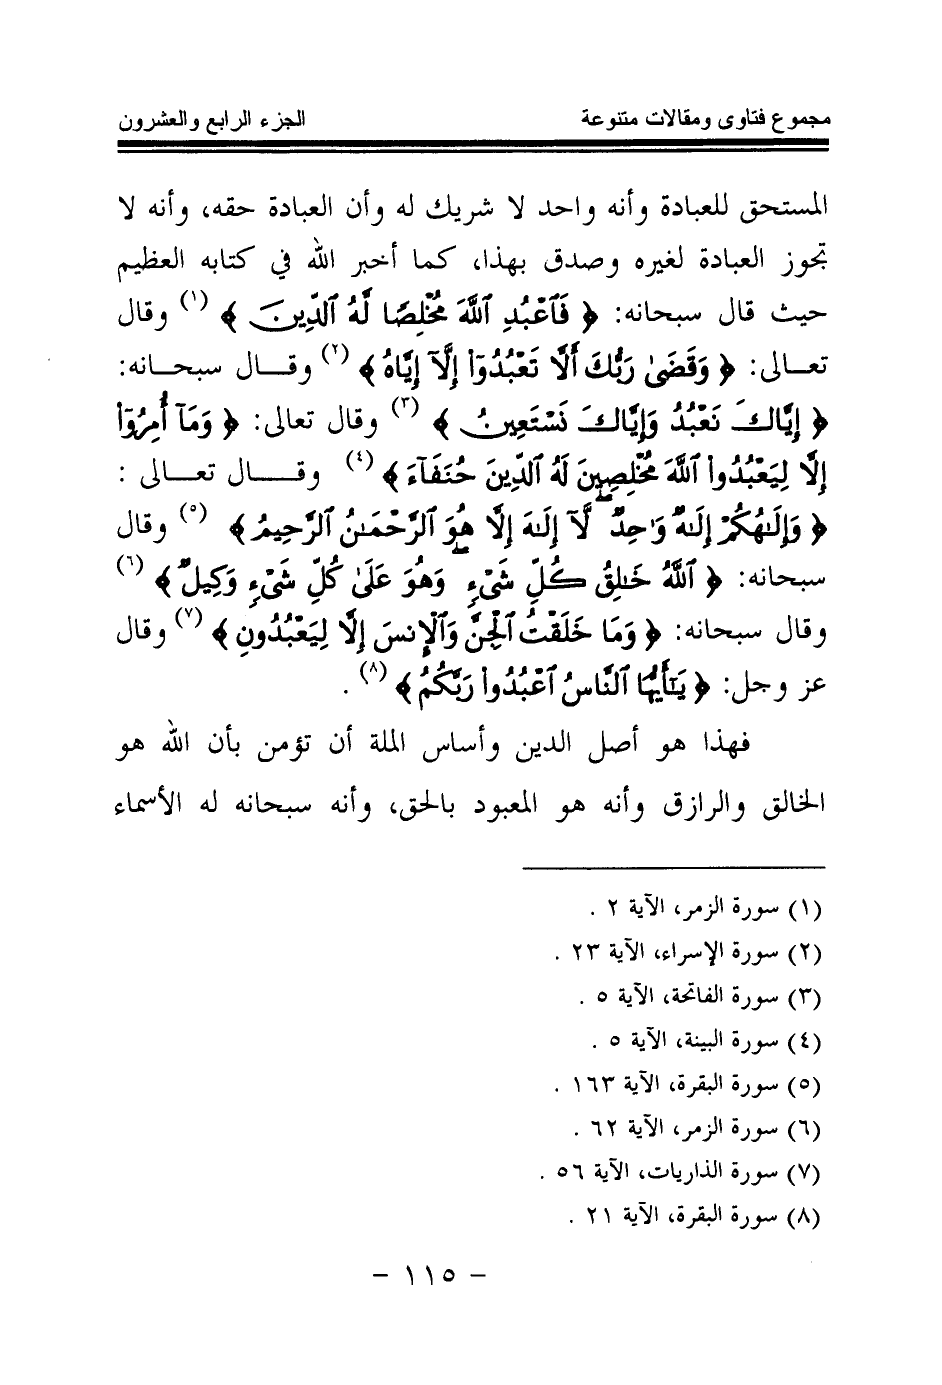 مجموع فتاوى ومقالات متنوعة الجزء الرابع والعشرون
المستحق للعبادة وأنه واحد لا شريك له وأن العبادة حقه، وأنه لا
تجوز العبادة لغيره وصدق بهذا، كما أخبر الله في كتابه العظيم
حيث قال سبحانه: ﴿ فَٱعْبُدِ ٱللَّهَ مُخْلِصًا لَّهُ ٱلدِّينَ ﴾ (١) وقال
تعالى: ﴿ وَقَضَىٰ رَبُّكَ أَلَّا تَعْبُدُوٓا۟ إِلَّآ إِيَّاهُ ﴾ (٢) وقال سبحانه:
﴿ إِيَّاكَ نَعْبُدُ وَإِيَّاكَ نَسْتَعِينُ ﴾ (٣) وقال تعالى: ﴿ وَمَآ أُمِرُوٓا۟
إِلَّا لِيَعْبُدُوا۟ ٱللَّهَ مُخْلِصِينَ لَهُ ٱلدِّينَ حُنَفَآءَ ﴾ (٤) وقال تعالى :
﴿ وَإِلَـٰهُكُمْ إِلَـٰهٌ وَٰحِدٌ ۖ لَّآ إِلَـٰهَ إِلَّا هُوَ ٱلرَّحْمَـٰنُ ٱلرَّحِيمُ ﴾ (٥) وقال
سبحانه: ﴿ ٱللَّهُ خَـٰلِقُ كُلِّ شَىْءٍ ۖ وَهُوَ عَلَىٰ كُلِّ شَىْءٍ وَكِيلٌ ﴾ (٦)
وقال سبحانه: ﴿ وَمَا خَلَقْتُ ٱلْجِنَّ وَٱلْإِنسَ إِلَّا لِيَعْبُدُونِ ﴾ (٧) وقال
عز وجل: ﴿ يَـٰٓأَيُّهَا ٱلنَّاسُ ٱعْبُدُوا۟ رَبَّكُمُ ﴾ (٨) .
فهذا هو أصل الدين وأساس الملة أن تؤمن بأن الله هو
الخالق والرازق وأنه هو المعبود بالحق، وأنه سبحانه له الأسماء
(١) سورة الزمر، الآية ٢ .
(٢) سورة الإسراء، الآية ٢٣ .
(٣) سورة الفاتحة، الآية ٥ .
(٤) سورة البينة، الآية ٥ .
(٥) سورة البقرة، الآية ١٦٣ .
(٦) سورة الزمر، الآية ٦٢ .
(٧) سورة الذاريات، الآية ٥٦ .
(٨) سورة البقرة، الآية ٢١ .
- ١١٥ -